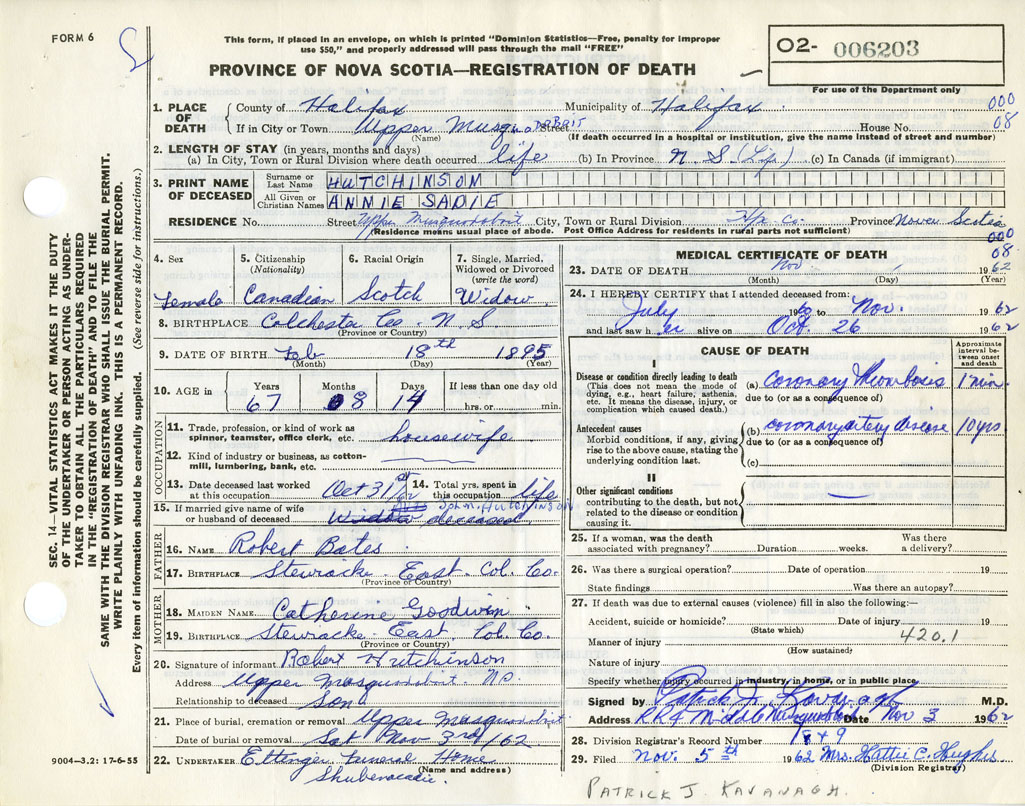 FORM 6
This form, if placed in an envelope, on which is printed "Dominion Statistics—Free, penalty for improper
use $50," and properly addressed will pass through the mail "FREE"
PROVINCE OF NOVA SCOTIA—REGISTRATION OF DEATH
02- 006203
For use of the Department only
000
08
1. PLACE OF DEATH
County of Halifax Municipality of Halifax
If in City or Town Upper Musquodobit Street House No.
(Name) (If death occurred in a hospital or institution, give the name instead of street and number)
2. LENGTH OF STAY (in years, months and days)
(a) In City, Town or Rural Division where death occurred life (b) In Province N S (Life) (c) In Canada (if immigrant)
3. PRINT NAME OF DECEASED
Surname or Last Name HUTCHINSON
All Given or Christian Names ANNIE SADIE
RESIDENCE No. Street Upper Musquodobit City, Town or Rural Division Hfx. Co. Province Nova Scotia
(Residence means usual place of abode. Post Office Address for residents in rural parts not sufficient)
000
08
4. Sex Female
5. Citizenship (Nationality) Canadian
6. Racial Origin Scotch
7. Single, Married, Widowed or Divorced (write the word) Widow
8. BIRTHPLACE Colchester Co. N S
(Province or Country)
9. DATE OF BIRTH Feb 18th 1895
(Month) (Day) (Year)
10. AGE in Years 67 Months 08 Days 14 If less than one day old hrs. or min.
OCCUPATION
11. Trade, profession, or kind of work as spinner, teamster, office clerk, etc. housewife
12. Kind of industry or business, as cotton-mill, lumbering, bank, etc.
13. Date deceased last worked at this occupation Oct 31st/62
14. Total yrs. spent in this occupation life
15. If married give name of wife or husband of deceased John M. HUTCHINSON
Widow deceased
FATHER
16. NAME Robert Bates
17. BIRTHPLACE Stewiacke East Col. Co.
(Province or Country)
MOTHER
18. MAIDEN NAME Catherine Goodwin
19. BIRTHPLACE Stewiacke East, Col. Co.
(Province or Country)
20. Signature of informant Robert Hutchinson
Address Upper Musquodobit. N.S.
Relationship to deceased Son
21. Place of burial, cremation or removal Upper Musquodobit
Date of burial or removal Sat Nov 3rd/62
22. UNDERTAKER Ettinger Funeral Home
Shubenacadie (Name and address)
MEDICAL CERTIFICATE OF DEATH
23. DATE OF DEATH Nov 1962
(Month) (Day) (Year)
24. I HEREBY CERTIFY that I attended deceased from:
July 1960 to Nov. 1962
and last saw her alive on Oct. 26 1962
CAUSE OF DEATH
Approximate interval between onset and death
I
Disease or condition directly leading to death
(This does not mean the mode of dying, e.g., heart failure, asthenia, etc. It means the disease, injury, or complication which caused death.)
(a) Coronary Thrombosis 1 min
due to (or as a consequence of)
Antecedent causes
Morbid conditions, if any, giving rise to the above cause, stating the underlying condition last.
(b) coronary artery disease 10 yrs
due to (or as a consequence of)
(c)
II
Other significant conditions
contributing to the death, but not related to the disease or condition causing it.
25. If a woman, was the death associated with pregnancy? Duration weeks. Was there a delivery?
26. Was there a surgical operation? Date of operation 19
State findings Was there an autopsy?
27. If death was due to external causes (violence) fill in also the following:—
Accident, suicide or homicide? Date of injury 19
(State which)
420.1
Manner of injury
(How sustained)
Nature of injury
Specify whether injury occurred in industry, in home, or in public place
Signed by Patrick J. Kavanagh M.D.
Address RR4 Middle Musquodobit Date Nov 3 1962
28. Division Registrar's Record Number
29. Filed Nov. 5th 1962 Mrs. Hattie C. Hughes
(Division Registrar)
PATRICK J. KAVANAGH.
9004—3.2: 17-6-55
SEC. 14—VITAL STATISTICS ACT MAKES IT THE DUTY
OF THE UNDERTAKER OR PERSON ACTING AS UNDER-
TAKER TO OBTAIN ALL THE PARTICULARS REQUIRED
IN THE "REGISTRATION OF DEATH" AND TO FILE THE
SAME WITH THE DIVISION REGISTRAR WHO SHALL ISSUE THE BURIAL PERMIT.
WRITE PLAINLY WITH UNFADING INK. THIS IS A PERMANENT RECORD.
Every item of information should be carefully supplied. (See reverse side for instructions.)